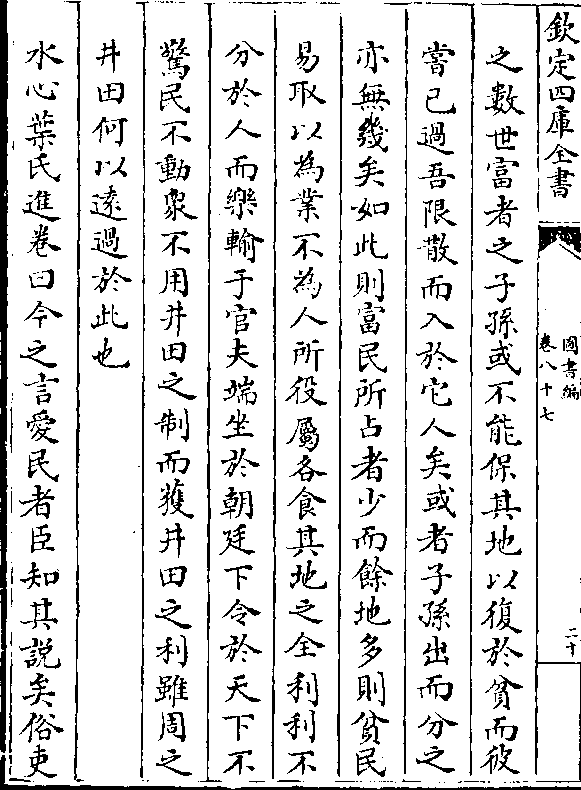 欽定四庫全書
圖書編
卷八十七
二十
之數世富者之子孫或不能保其地以復於貧而彼
嘗已過吾限散而入於它人矣或者子孫出而分之
亦無幾矣如此則富民所占者少而餘地多則貧民
易取以為業不為人所役屬各食其地之全利利不
分於人而樂輸于官夫端坐於朝廷下令於天下不
驚民不動衆不用井田之制而獲井田之利雖周之
井田何以逺過於此也
水心葉氏進卷曰今之言愛民者臣知其説矣俗吏